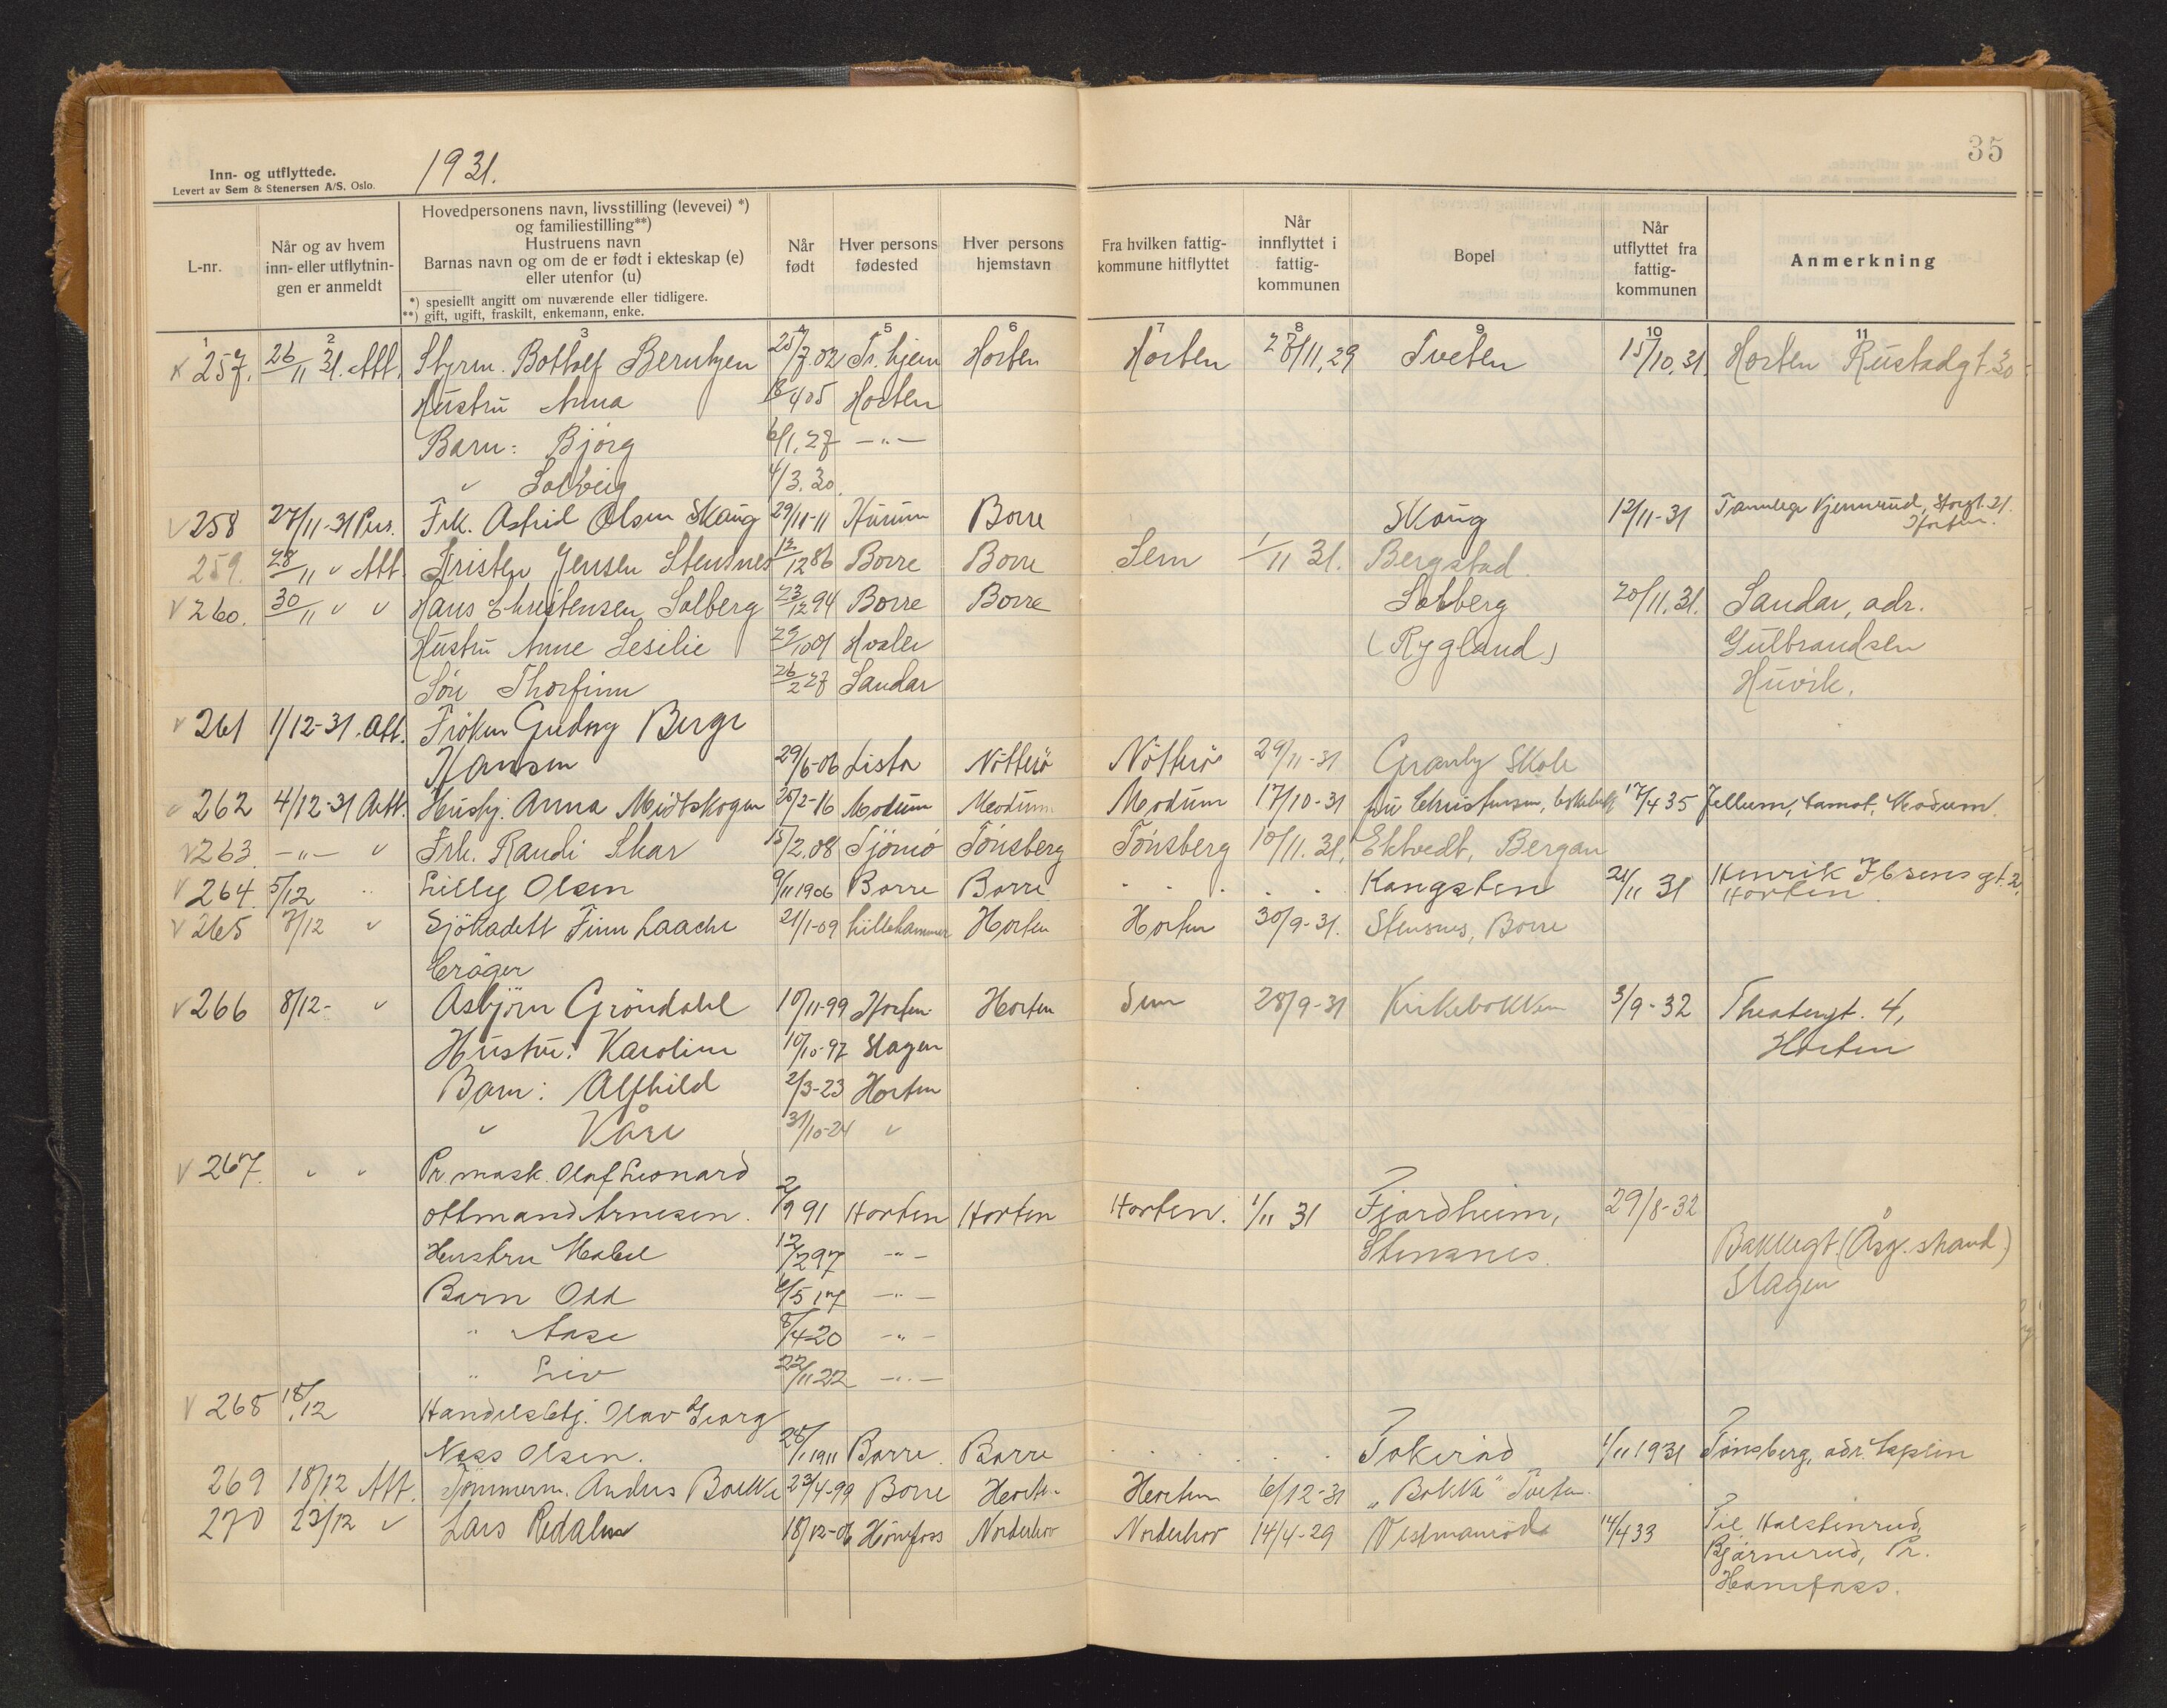 35
Inn- og utflyttede.
Levert av Sem & Stenersen A/S. Oslo.
1931.
L-nr.
Når og av hvem inn- eller utflytnin- gen er anmeldt
Hovedpersonens navn, livsstilling (levevei) *)
og familiestilling**)
Hustruens navn
Barnas navn og om de er født i ekteskap (e)
eller utenfor (u)
*) spesielt angitt om nuværende eller tidligere.
**) gift, ugift, fraskilt, enkemann, enke.
Når født
Hver persons fødested
Hver persons hjemstavn
Fra hvilken fattig- kommune hitflyttet
Når innflyttet i fattig- kommunen
Bopel
Når utflyttet fra fattig- kommunen
Anmerkning
1 2 3 4 5 6 7 8 9 10 11
257. 26/11 31. Att. Styrm. Bottolf Berntzen 25/7.02 Tr.hjem Horten Horten 28/11.29 Tveten 15/10.31. Horten Rustadgt. 30
Hustru Anna 18/4 05 Horten
Barn: Bjørg 6/1.27 -"-
" Solveig 4/3.30.
258 27/11-31 Pers. Frk. Astrid Olsen Skaug 29/11-11 Hurum Borre Skaug 12/11-31 Tannlege Gjennrud, Storgt. 21. Horten.
259. 28/11 " Att. Kristen Jensen Stensnes 12/12 86 Borre Borre Sem 1/11 31. Bergstad.
260. 30/11 " " Hans Christensen Solberg 23/12 94 Borre Borre Solberg 20/11.31. Sandar, adr.
Hustru Anne Sesilie 29/10 01 Hvaler (Rygland) Gulbrandsen
Søn Thorfinn 26/2 27 Sandar Huvik.
261 1/12-31. Att. Frøken Gudny Berge
Hansen 29/6-06 Lista Nøtterø Nøtterø 29/11-31 Granly Skole
262 4/12-31 Att. Hushj. Anna Midtskogen 25/2-16 Modum Modum Modum 17/10-31 fru Christensen, 17/4 35 Jellum, Åmot, Modum.
263. -"- " Frk. Randi Skar 15/2.08 Tjømø Tønsberg Tønsberg 10/11.31. Ektvedt, Bergan
264. 5/12 " Lilly Olsen 9/11 1906 Borre Borre . . . . . Kangsten 21/11 31 Henrik Ibsens gt. 2. Horten.
265 7/12 " Sjøkadett Finn Laache 21/1-09 Lillehammer Horten Horten 30/9-31. Stensnes, Borre
Crøger
266 8/12- " Asbjørn Grøndahl 10/11-99 Horten Horten Sem 28/9-31 Kirkebakken 3/9-32 Theatergt. 4,
Hustru: Karoline 10/10-97 Slagen Horten
Barn: Alfhild 2/3-23 Horten
" Kåre 31/10-24 "
267. " " Pr. mask. Olaf Leonard
Ottmand Arnesen. 2/9 91 Horten Horten Horten. 1/11 31 Fjordheim, 29/8-32
Hustru Mabel 12/2 97 -"- Stensnes. Bakkegt. (Åsg. strand)
Barn Odd 6/5 17 -"- Slagen
" Aase 8/4 20 -"-
" Liv 22/11 22 -"-
268 18/12 Handelsbetj. Olav Georg
Næss Olsen. 28/1 1911 Borre. Borre . . . . . Tokerød 1/11 1931 Tønsberg, adr. Esplin
269 18/12 Att. Tømmerm. Anders Bakke 23/4-99 Borre Horten Horten 6/12-31 "Bakke" Tveten.
270 23/12 " Lars Redalen 18/12-06 Hønefoss Norderhov Norderhov 14/4-29 Vestmanrød 14/4 33 Til Halstinrud,
Bjørnerud, Pr.
Hønefoss.